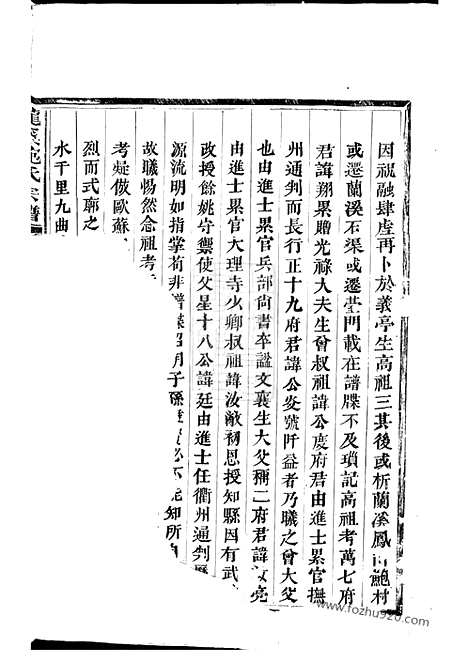 因祝融肆虐再卜於義亭生高祖三其後或析蘭溪鳳山鮑村
或遷蘭溪石渠或遷塋門載在譜牒不及瑣記高祖考萬七府
君諱翔累贈光祿大夫生曾叔祖諱公度府君由進士累官撫
州通判而長行正十九府君諱公姿號阡益者乃曦之曾大父
也由進士累官兵部尚書卒諡文襄生大父稱二府君諱汝亮
由進士累官大理寺少卿叔祖諱汝敵初恩授知縣因有武
政授餘姚守禦使父星十八公諱廷由進士任衢州通判
源流明如指掌苟非譜牒昭明子孫 必不能知所自
故曦惕然念祖考
考疑倣歐蘇
烈而式廓之
水千里九曲
龍溪鮑氏宗譜
www.fozhu920.com